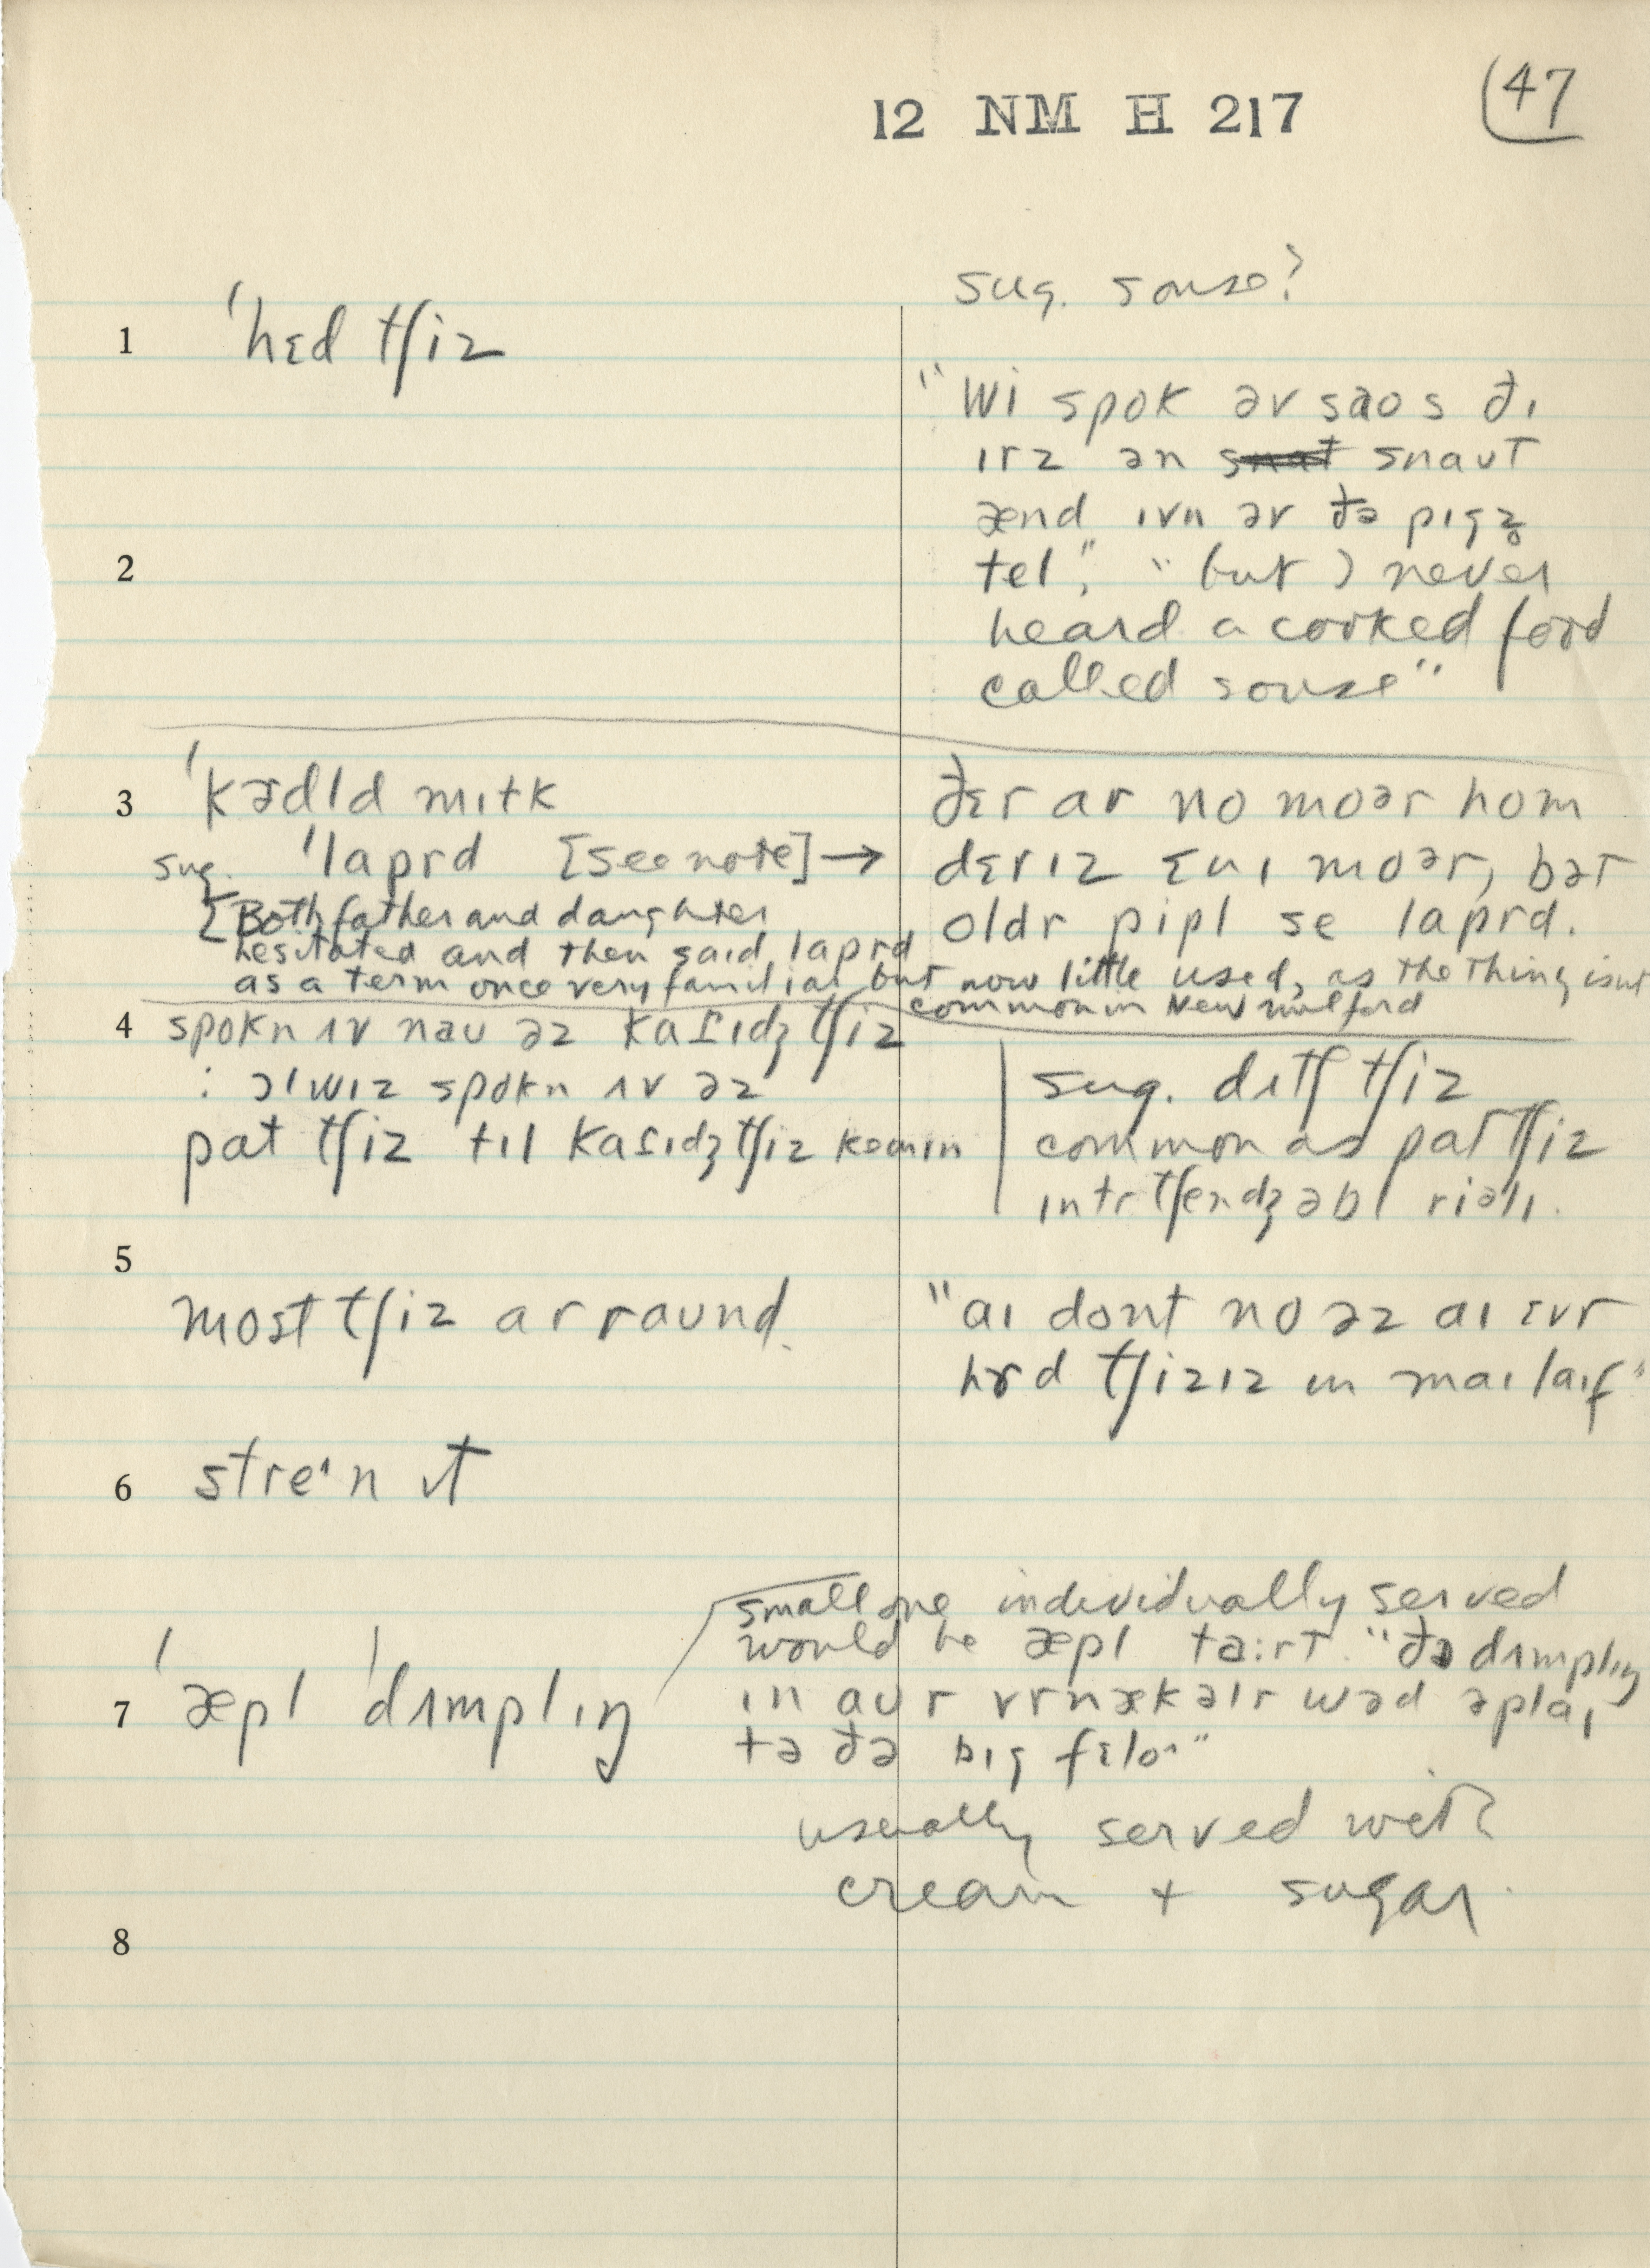 12 NM H 217
47
sug. souse?
1 'hɛd tʃiz
"wi spok əv saos ðɪ
ɪrz ən snaʊt
ænd ɪvn əv ðə pɪgz̥
2
tel," "but I never
heard a cooked food
called souse"
3 'kɜdld mɪɫk
sug. 'lɑprd [see note] →
{Both father and daughter
hesitated and then said lɑprd
as a term once very familiar but now little used, as the thing isnt
common in New Milford
ðɛr ar no moər hom
dɛr ɪz ɛnɪ moər, bət
oldr pipl se lɑprd.
4 spokn ʌv naʊ əz kɑtɪdʒ tʃiz
: ɔlwɪz spokn ʌv əz
pɑt tʃiz tɪl kɑtɪdʒ tʃiz kəmɪn
sug. dʌtʃ tʃiz
common as pɑt tʃiz
ɪntrtʃendʒəbl riəlɪ.
5
most tʃiz ar raʊnd.
"aɪ dont no əz aɪ ɛvr
hɜd tʃizɪz ɪn maɪ laɪf"
6 stre'n ɪt
7 'æpl 'dʌmplɪŋ
small one individually served
would be æpl ta:rt. "ðə dʌmplɪŋ
ɪn aʊr vrnækəlr wəd əplaɪ
tə ðə bɪg fɛlo"
usually served with
cream + sugar.
8